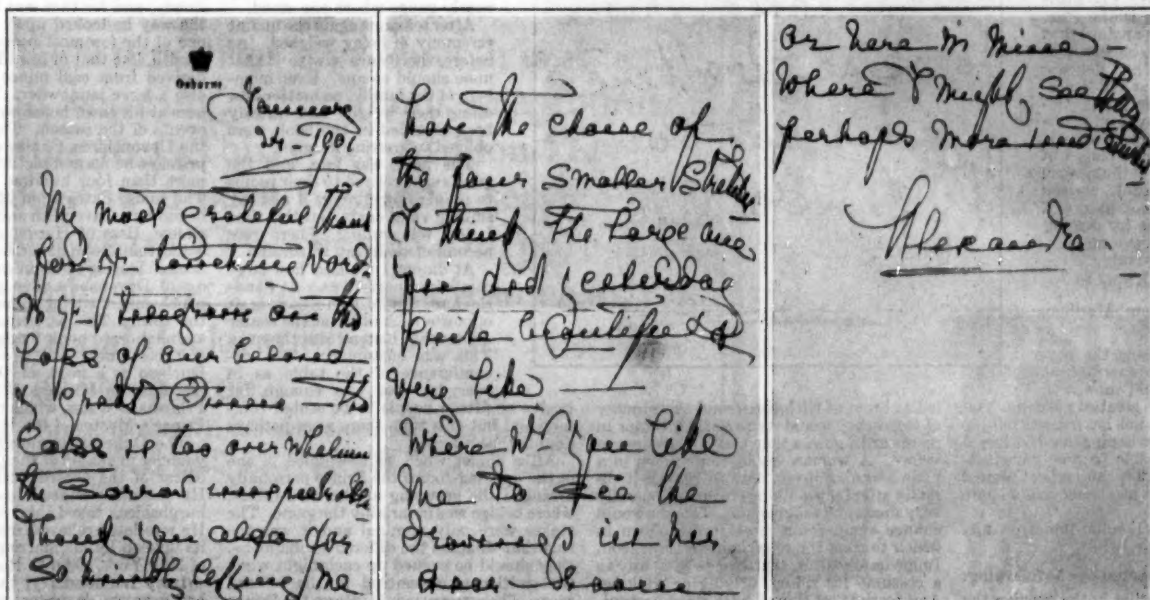 Osborne
January
24 - 1901
My most grateful thanks
for yr touching words
in yr telegram on the
loss of our beloved
& great Queen - the
loss is too overwhelming
the sorrow unspeakable
Thank you also for
so kindly letting me
have the choice of
the four smaller sketches
I think the large one
you did yesterday
quite beautiful &
very like
Where wd you like
me to see the
drawings in her
own room
or here in mine -
where I might see them
perhaps more undisturbed
Alexandra.